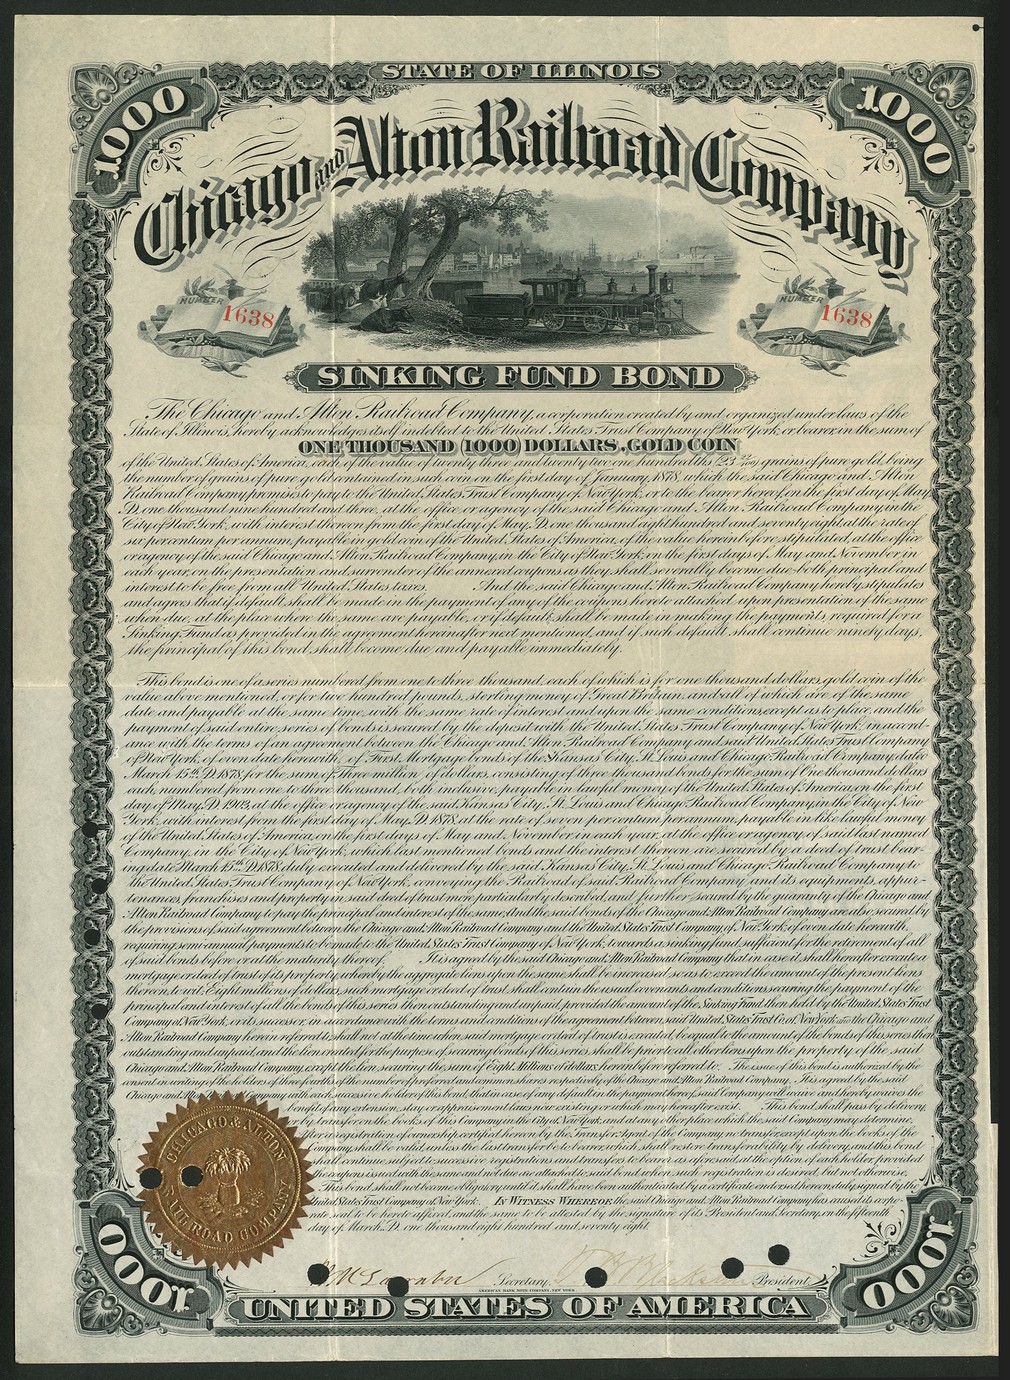 STATE OF ILLINOIS
1000
1000
Chicago and Alton Railroad Company
NUMBER 1638
NUMBER 1638
SINKING FUND BOND
The Chicago and Alton Railroad Company, a corporation created by and organized under laws of the
State of Illinois, hereby acknowledges itself indebted to the United States Trust Company of New York, or bearer, in the sum of
ONE THOUSAND (1000) DOLLARS, GOLD COIN
of the United States of America, each of the value of twenty three and twenty two one hundredths (23 22/100) grains of pure gold, being
the number of grains of pure gold contained in such coin on the first day of January, 1878, which the said Chicago and Alton
Railroad Company promises to pay to the United States Trust Company of New York, or to the bearer hereof, on the first day of May
A.D. one thousand nine hundred and three, at the office or agency of the said Chicago and Alton Railroad Company, in the
City of New York, with interest thereon from the first day of May, A.D. one thousand eight hundred and seventy eight at the rate of
six per centum per annum, payable in gold coin of the United States of America, of the value hereinbefore stipulated, at the office
or agency of the said Chicago and Alton Railroad Company, in the City of New York, on the first days of May and November in
each year, on the presentation and surrender of the annexed coupons as they shall severally become due both principal and
interest to be free from all United States taxes. And the said Chicago and Alton Railroad Company hereby stipulates
and agrees that if default shall be made in the payment of any of the coupons hereto attached upon presentation of the same
when due, at the place where the same are payable, or if default shall be made in making the payments required for a
Sinking Fund as provided in the agreement hereinafter next mentioned, and if such default shall continue ninety days,
the principal of this bond shall become due and payable immediately.
This bond is one of a series numbered from one to three thousand, each of which is for one thousand dollars, gold coin of the
value above mentioned, or for two hundred pounds, sterling money of Great Britain, and all of which are of the same
date and payable at the same time, with the same rate of interest and upon the same conditions, except as to place, and the
payment of said entire series of bonds is secured by the deposit with the United States Trust Company of New York, in accord-
ance with the terms of an agreement between the Chicago and Alton Railroad Company and said United States Trust Company
of New York, of even date herewith, of First Mortgage bonds of the Kansas City, St. Louis and Chicago Railroad Company, dated
March 15th A.D. 1878, for the sum of Three million of dollars, consisting of three thousand bonds for the sum of One thousand dollars
each, numbered from one to three thousand, both inclusive, payable in lawful money of the United States of America, on the first
day of May A.D. 1903, at the office or agency of the said Kansas City, St. Louis and Chicago Railroad Company, in the City of New
York, with interest from the first day of May, A.D. 1878, at the rate of seven per centum per annum, payable in like lawful money
of the United States of America, on the first days of May and November in each year, at the office or agency of said last named
Company, in the City of New York, which last mentioned bonds and the interest thereon are secured by a deed of trust bear-
ing date March 15th A.D. 1878, duly executed and delivered by the said Kansas City, St. Louis and Chicago Railroad Company to
the United States Trust Company of New York, conveying the Railroad of said Railroad Company and its equipments, appur-
tenances, franchises and property in said deed of trust more particularly described, and further secured by the guaranty of the Chicago and
Alton Railroad Company to pay the principal and interest of the same. And the said bonds of the Chicago and Alton Railroad Company are also secured by
the provisions of said agreement between the Chicago and Alton Railroad Company and the United States Trust Company of New York, of even date herewith,
requiring semi annual payments to be made to the United States Trust Company of New York, towards a sinking fund, sufficient for the retirement of all
of said bonds before or at the maturity thereof. It is agreed by the said Chicago and Alton Railroad Company that in case it shall hereafter execute a
mortgage or deed of trust of its property, whereby the aggregate liens upon the same shall be increased so as to exceed the amount of the present liens
thereon, to wit: Eight millions of dollars, such mortgage or deed of trust, shall contain the usual covenants and conditions securing the payment of the
principal and interest of all the bonds of this series then outstanding and unpaid, provided the amount of the Sinking Fund then held by the United States Trust
Company of New York, or its successor, in accordance with the terms and conditions of the agreement between said United States Trust Co. of New York and the Chicago and
Alton Railroad Company herein referred to, shall not at the time when said mortgage or deed of trust is executed, be equal to the amount of the bonds of this series then
outstanding and unpaid, and the lien created for the purpose of securing bonds of this series shall be prior to all other liens upon the property of the said
Chicago and Alton Railroad Company, except the lien securing the sum of Eight Millions of dollars, hereinbefore referred to. The issue of this bond is authorized by the
consent in writing of the holders of three fourths of the number of preferred and common shares respectively of the Chicago and Alton Railroad Company. It is agreed by the said
Chicago and Alton Railroad Company with each successive holder of this bond, that in case of any default in the payment thereof, said Company will waive and hereby waives the
benefit of any extension, stay or appraisement laws now existing or which may hereafter exist. This bond shall pass by delivery,
or by transfer on the books of this Company in the City of New York, and at any other place which the said Company may determine,
After registration of ownership certified hereon by the Transfer Agent of the Company, no transfer except upon the books of the
Company shall be valid, unless the last transfer be to bearer, which shall restore transferability by delivery, and this bond
shall continue subject to successive registrations and transfers to bearer, as aforesaid, at the option of each holder, provided
the coupons issued with the same and not due are attached to said bond when such registration is desired, but not otherwise.
This bond shall not become obligatory until it shall have been authenticated by a certificate endorsed hereon duly signed by the
United States Trust Company of New York. IN WITNESS WHEREOF, the said Chicago and Alton Railroad Company has caused its corpo-
rate seal to be hereto affixed, and the same to be attested by the signature of its President and Secretary, on the fifteenth
day of March, A.D. one thousand eight hundred and seventy eight.
CHICAGO & ALTON
RAIL ROAD COMPANY
Secretary.
President.
AMERICAN BANK NOTE COMPANY, NEW YORK
1000
1000
UNITED STATES OF AMERICA